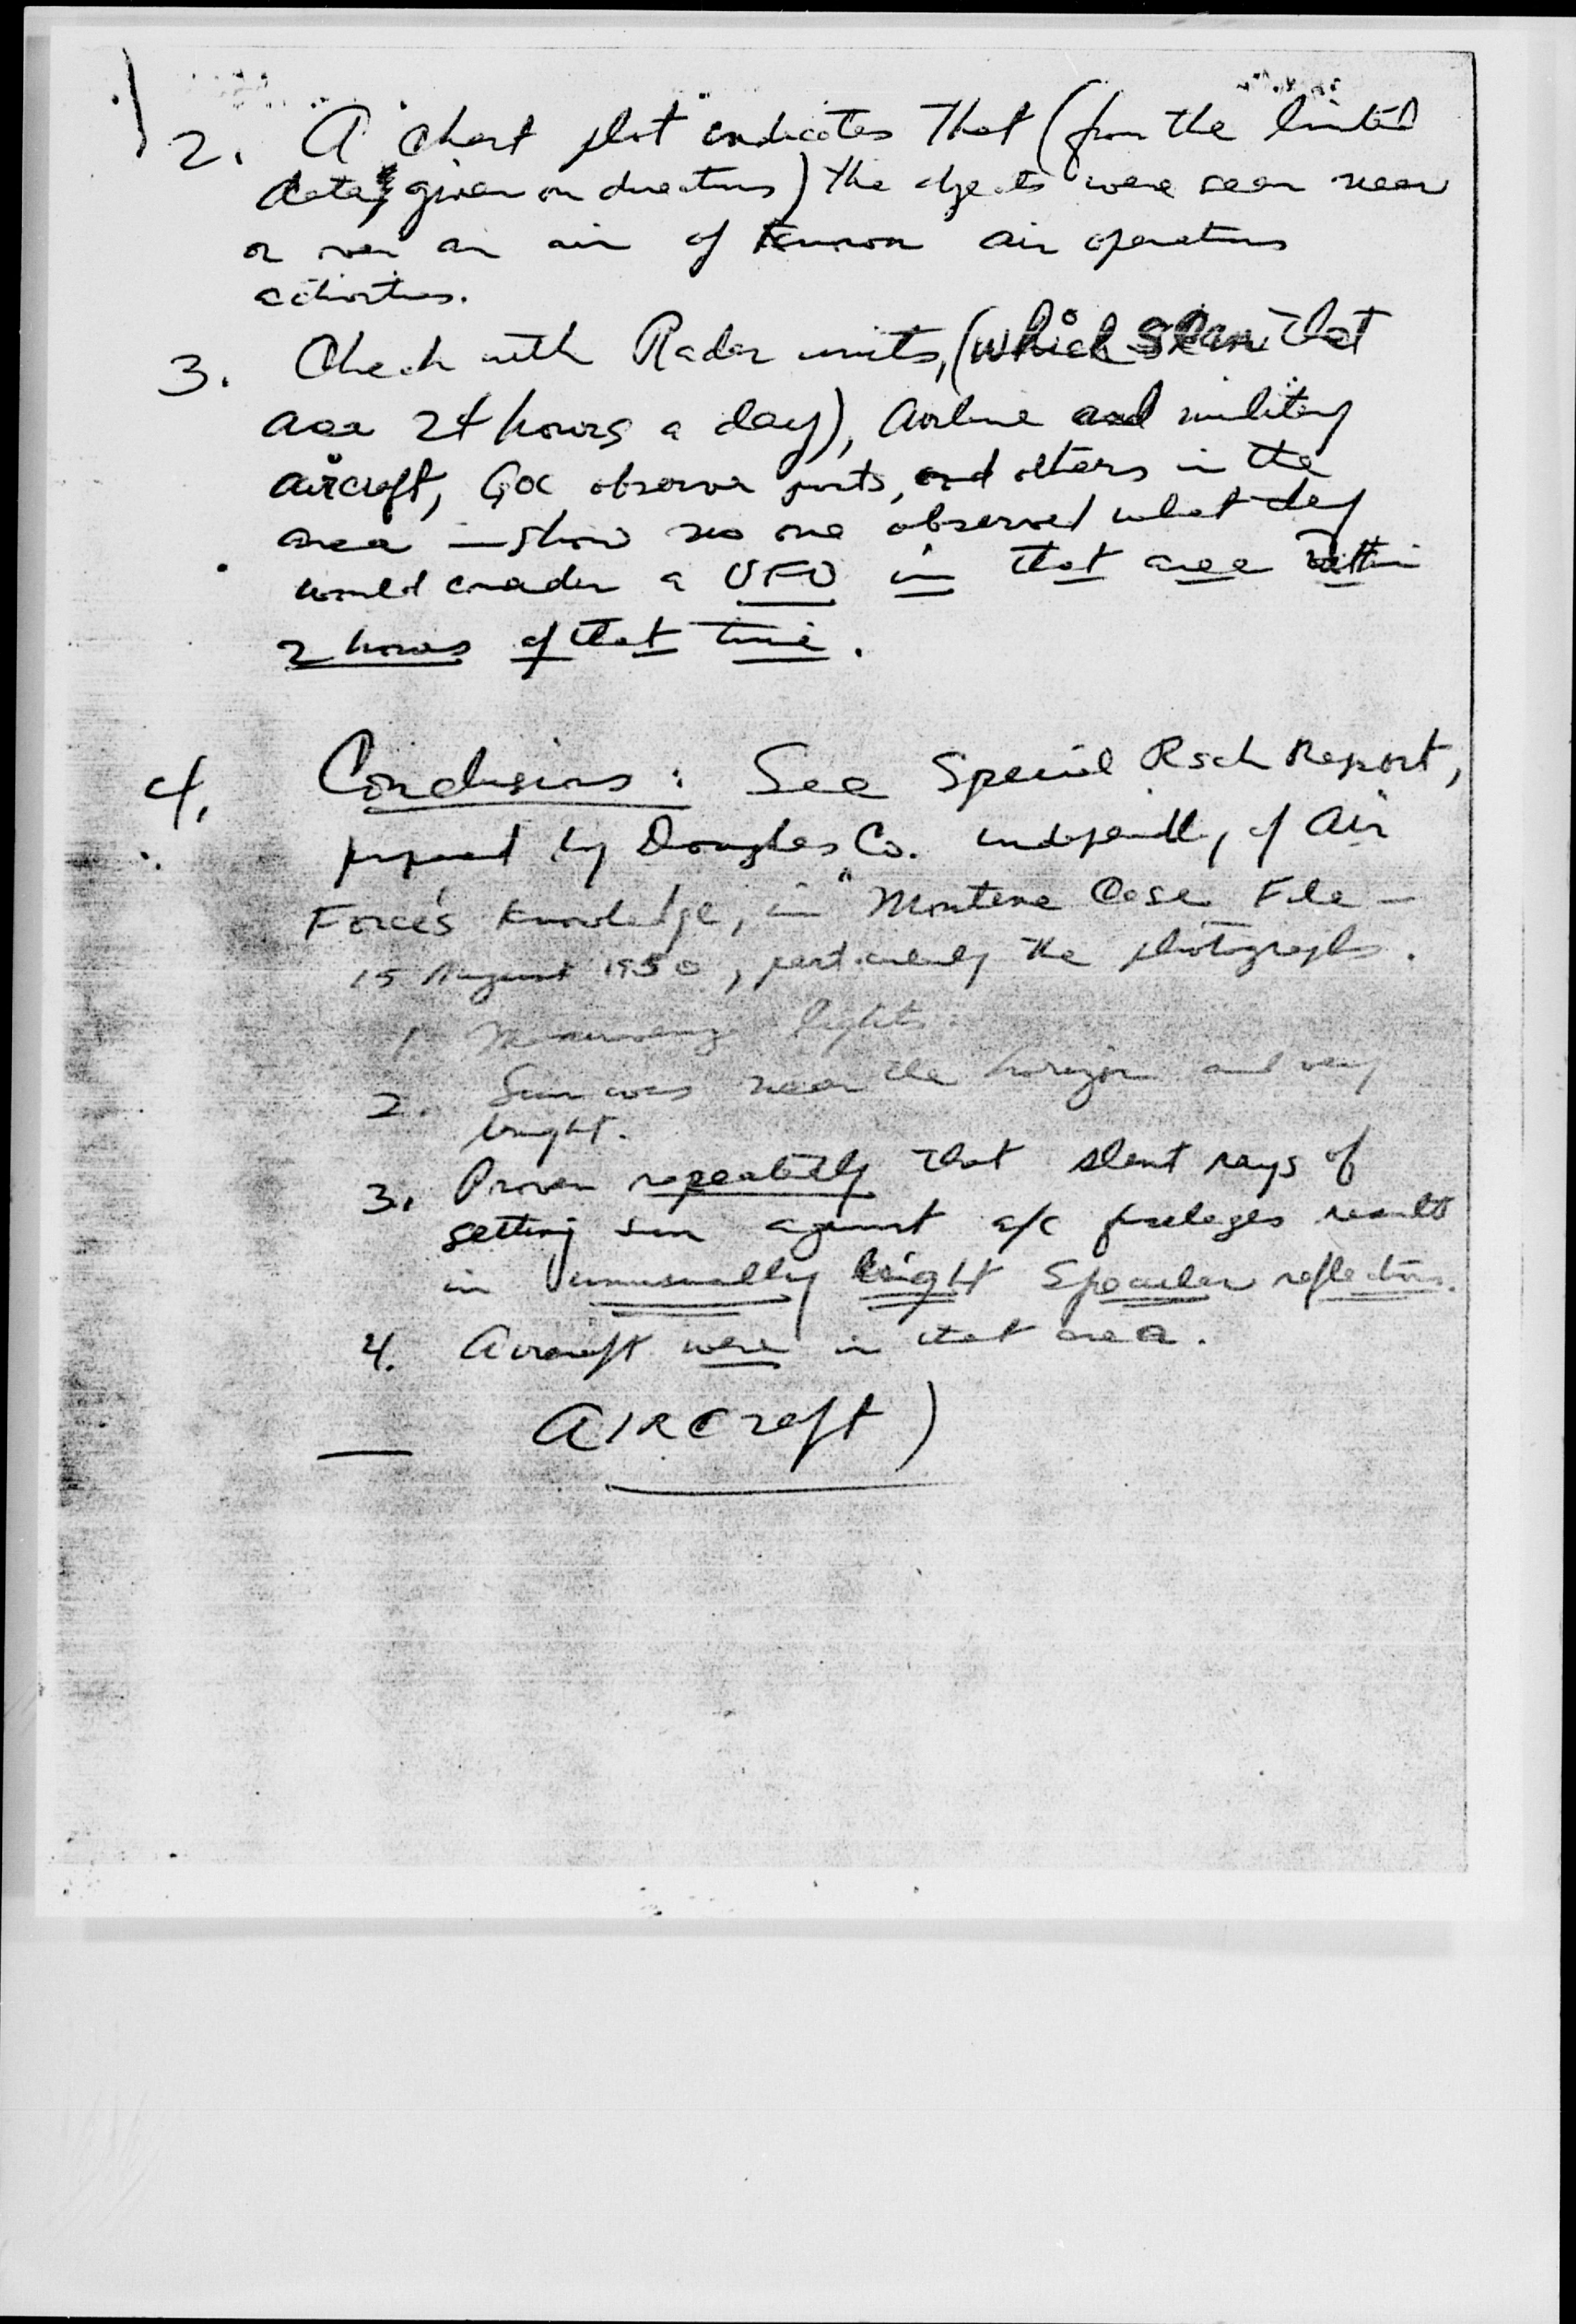 2. A "chart plot" indicates that (from the limited
data given on directions) the objects were seen near
or over an air of known air operations
activities.
3. Check with Radar units, (which scan that
area 24 hours a day), airline and military
aircraft, GOC observer posts, and others in the
area — show no one observed what they
would consider a UFO in that area within
2 hours of that time.
4. Conclusions: See Special Rsch Report,
prepared by Douglas Co. independently of Air
Force's knowledge, in "Montana Case File –
15 August 1950, particularly the photographs.
1. lights.
2. Sun was near the horizon and very
bright.
3. Proven repeatedly that slant rays of
setting sun against a/c fuselages results
in unusually bright specular reflections.
4. Aircraft were in that area.
AIRCraft)